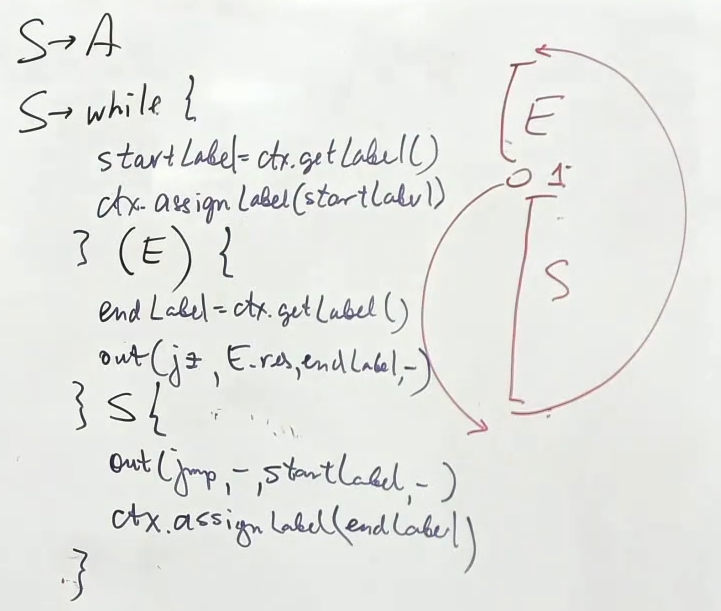 S→ A
S→ while {
startLabel=ctx.getLabel()
ctx.assignLabel(startLabel)
} (E) {
endLabel=ctx.getLabel()
out(jz, E.res,endLabel,-)
} S{
out(jmp,-,startLabel,-)
ctx.assignLabel(endLabel)
}
E
0 1
S